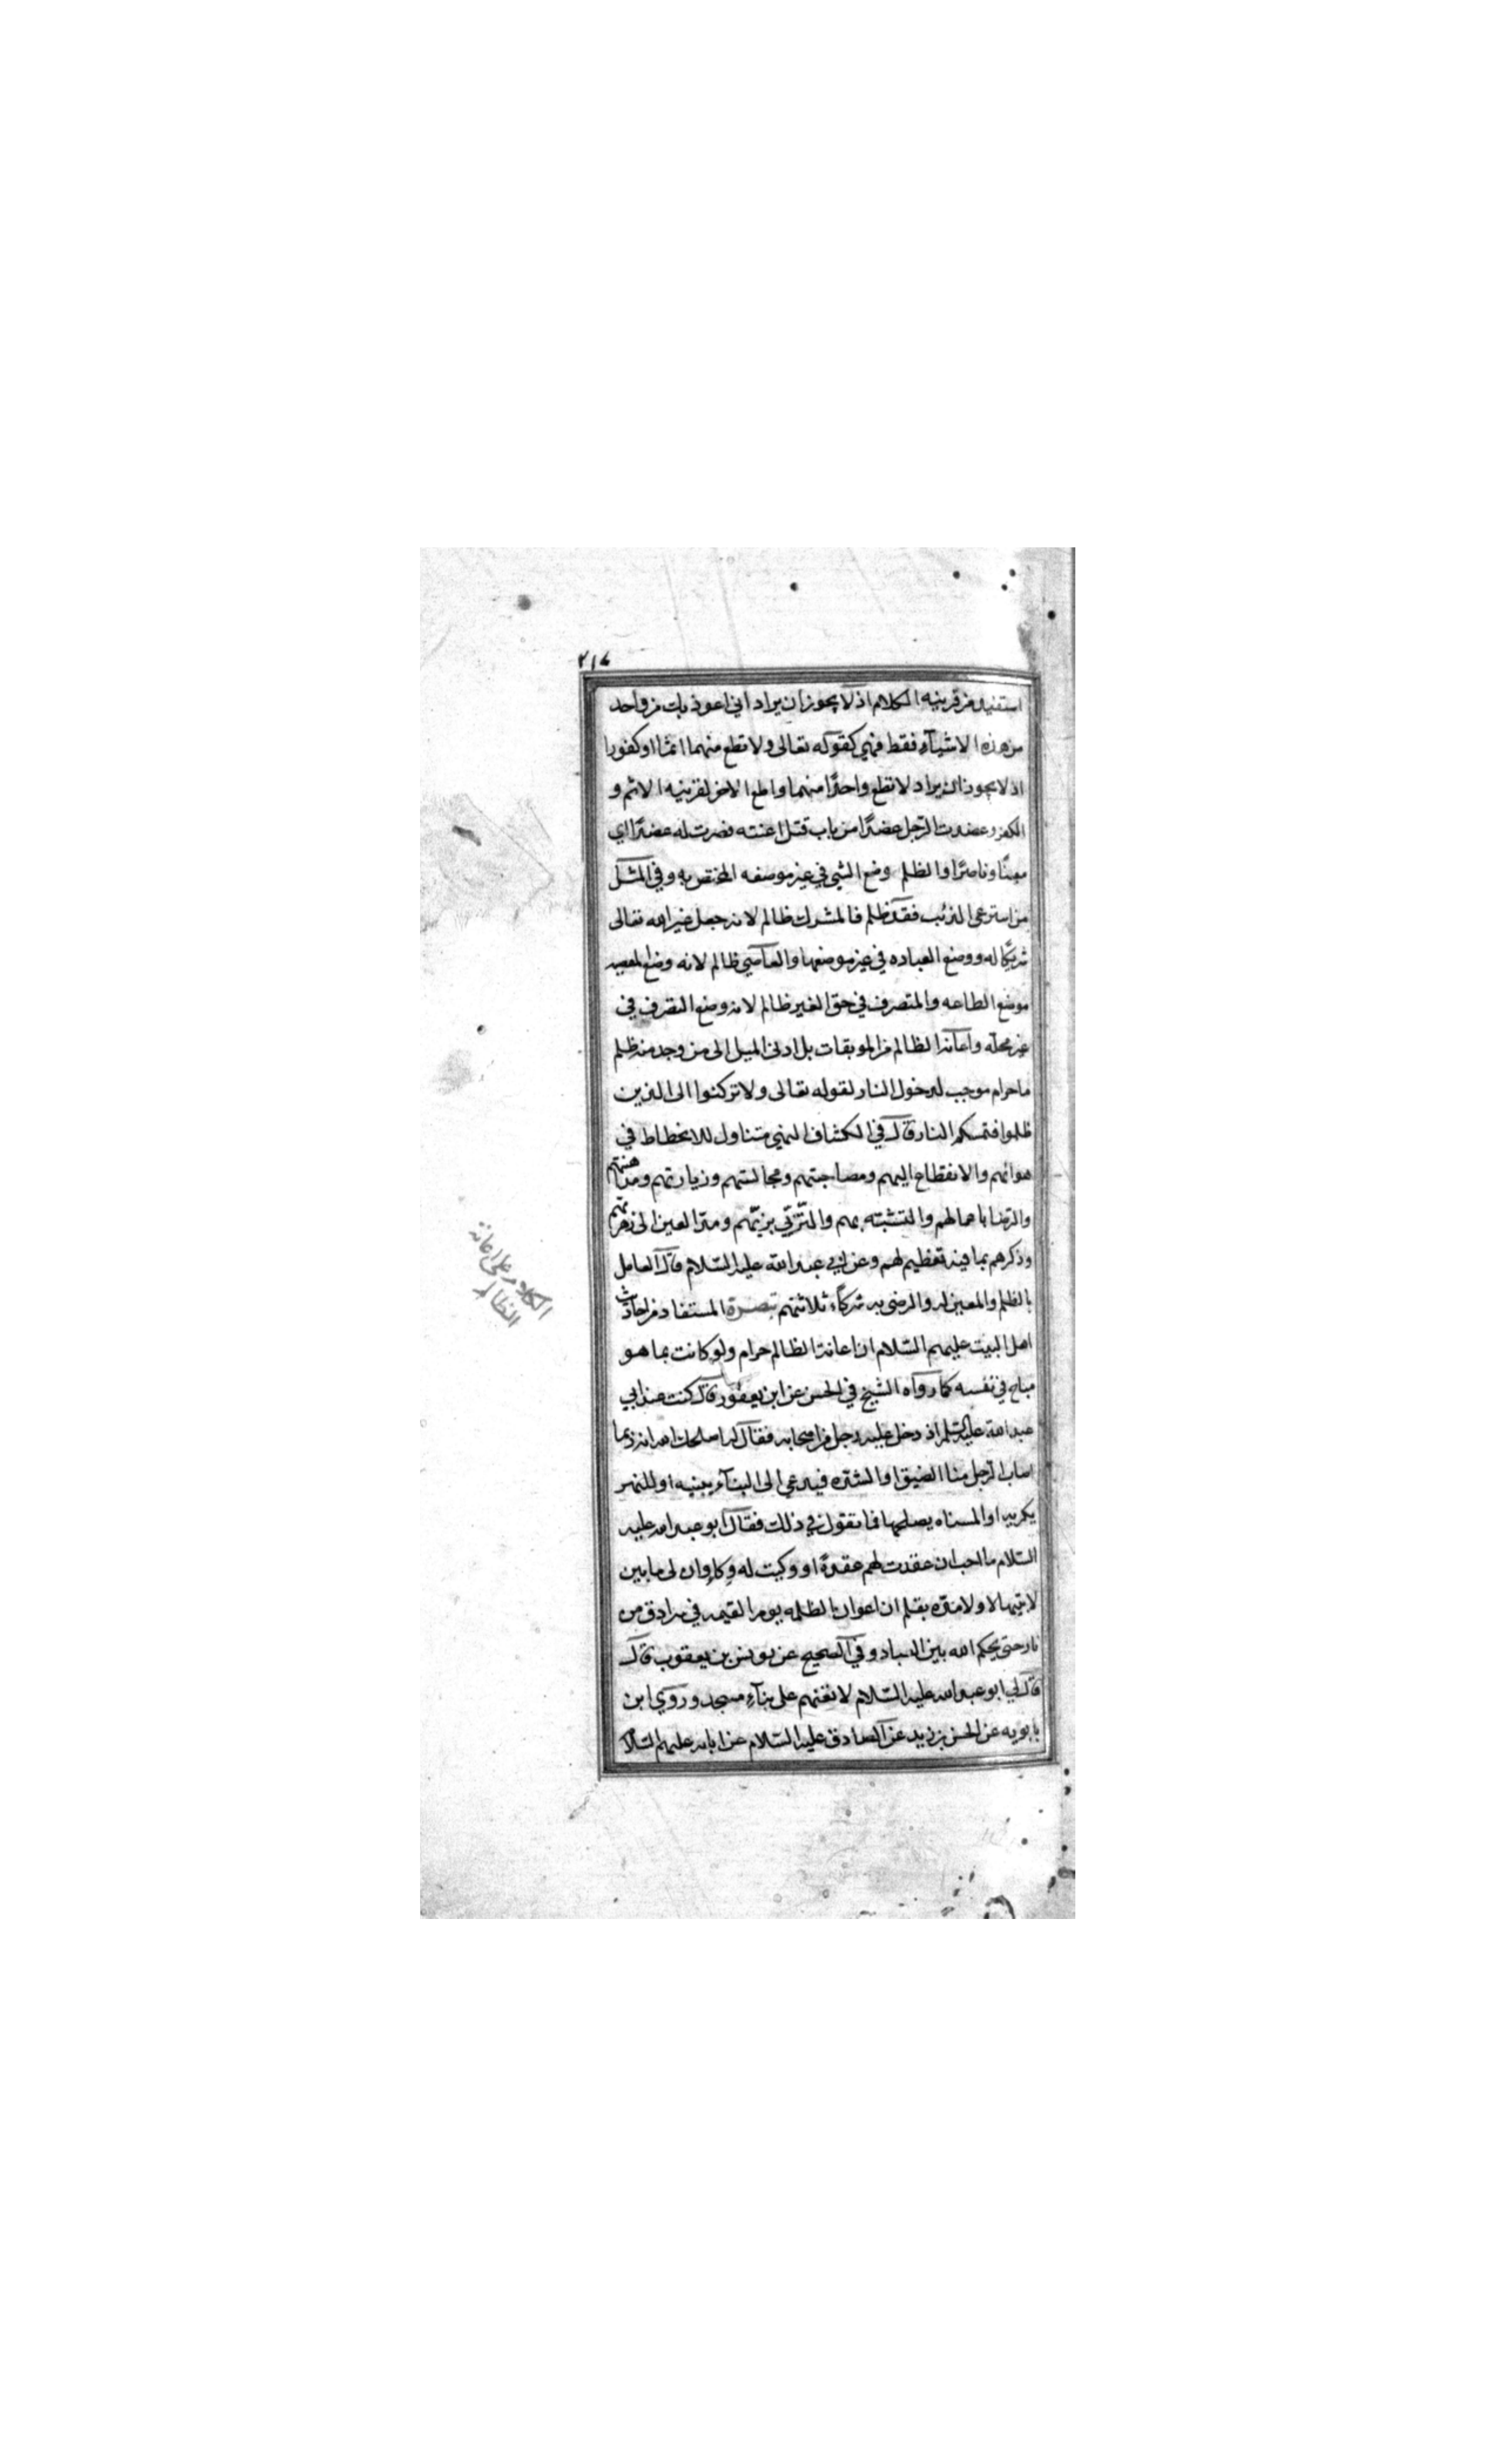 ٢١٧
استفيد من قرينه الكلام اذ لا يجوز ان يراد اني اعوذ بك من واحد
من هذه الاشيآء فقط فهي كقوله تعالى ولا تطع منهما اثما او كفورا
اذ لا يجوز ان يراد لا تطع واحدًا منهما واطع الاخر لقرينه الاثم و
الكفر وعضدت الرّجل عضدًا من باب قتل اعنته فصرت له عضدًا اي
معينًا وناصرًا والظلم وضع الشي في غير موضعه المختص به وفي المثل
من استرعى الذئب فقد ظلم فالمشرك ظالم لانه جعل غير الله تعالى
شريكًا له ووضع العباده في غير موضعها والعاصي ظالم لانه وضع المعصيه
موضع الطاعه والمتصرف في حق الغير ظالم لانه وضع التصرف في
غير محله واعانة الظالم من الموبقات بل ادنى الميل الى من وجد منه ظلم
ما حرام موجب لدخول النار لقوله تعالى ولا تركنوا الى الذين
ظلموا فتمسكم النار قال في الكشاف النهي متناول للانحطاط في
هوائهم والانقطاع اليهم ومصاحبتهم ومجالستهم وزيارتهم ومداهنتهم
والرّضا باعمالهم والتشبّه بهم والتّزيّي بزيّهم ومدّ العين الى زهرتهم
وذكرهم بما فيه تعظيم لهم وعن ابي عبد الله عليه السّلام قال العامل
بالظلم والمعين له والرضى به شركآء ثلاثتهم تبصرة المستفاد من احاديث
اهل البيت عليهم السّلام ان اعانة الظالم حرام ولو كانت بما هو
مباح في نفسه كما رواه الشيخ في الحسن عن ابن يعفور قال كنت عند ابي
عبد الله عليه السّلم اذ دخل عليه رجل من اصحابه فقال له اصلحك الله انه ربما
اصاب الرّجل منا الضيق او الشدّه فيدعى الى البنآء يبنيه او للنهر
يكريه او المسناه يصلحها فما تقول في ذلك فقال ابو عبد الله عليه
السّلام ما احب ان عقدت لهم عقدةً او وكيت له وكاء وان لى ما بين
لابتيها لا ولا مدّه بقلم ان اعوان الظلمه يوم القيمه في سرادق من
نار حتى يحكم الله بين العباد وفي الصحيح عن يونس بن يعقوب قال
قال لي ابو عبد الله عليه السّلام لا تعنهم على بنآء مسجد وروي ابن
بابويه عن الحسن بن زيد عن الصادق عليه السّلام عن ابائه عليهم السّلام
الكلام على اعانة
الظالم